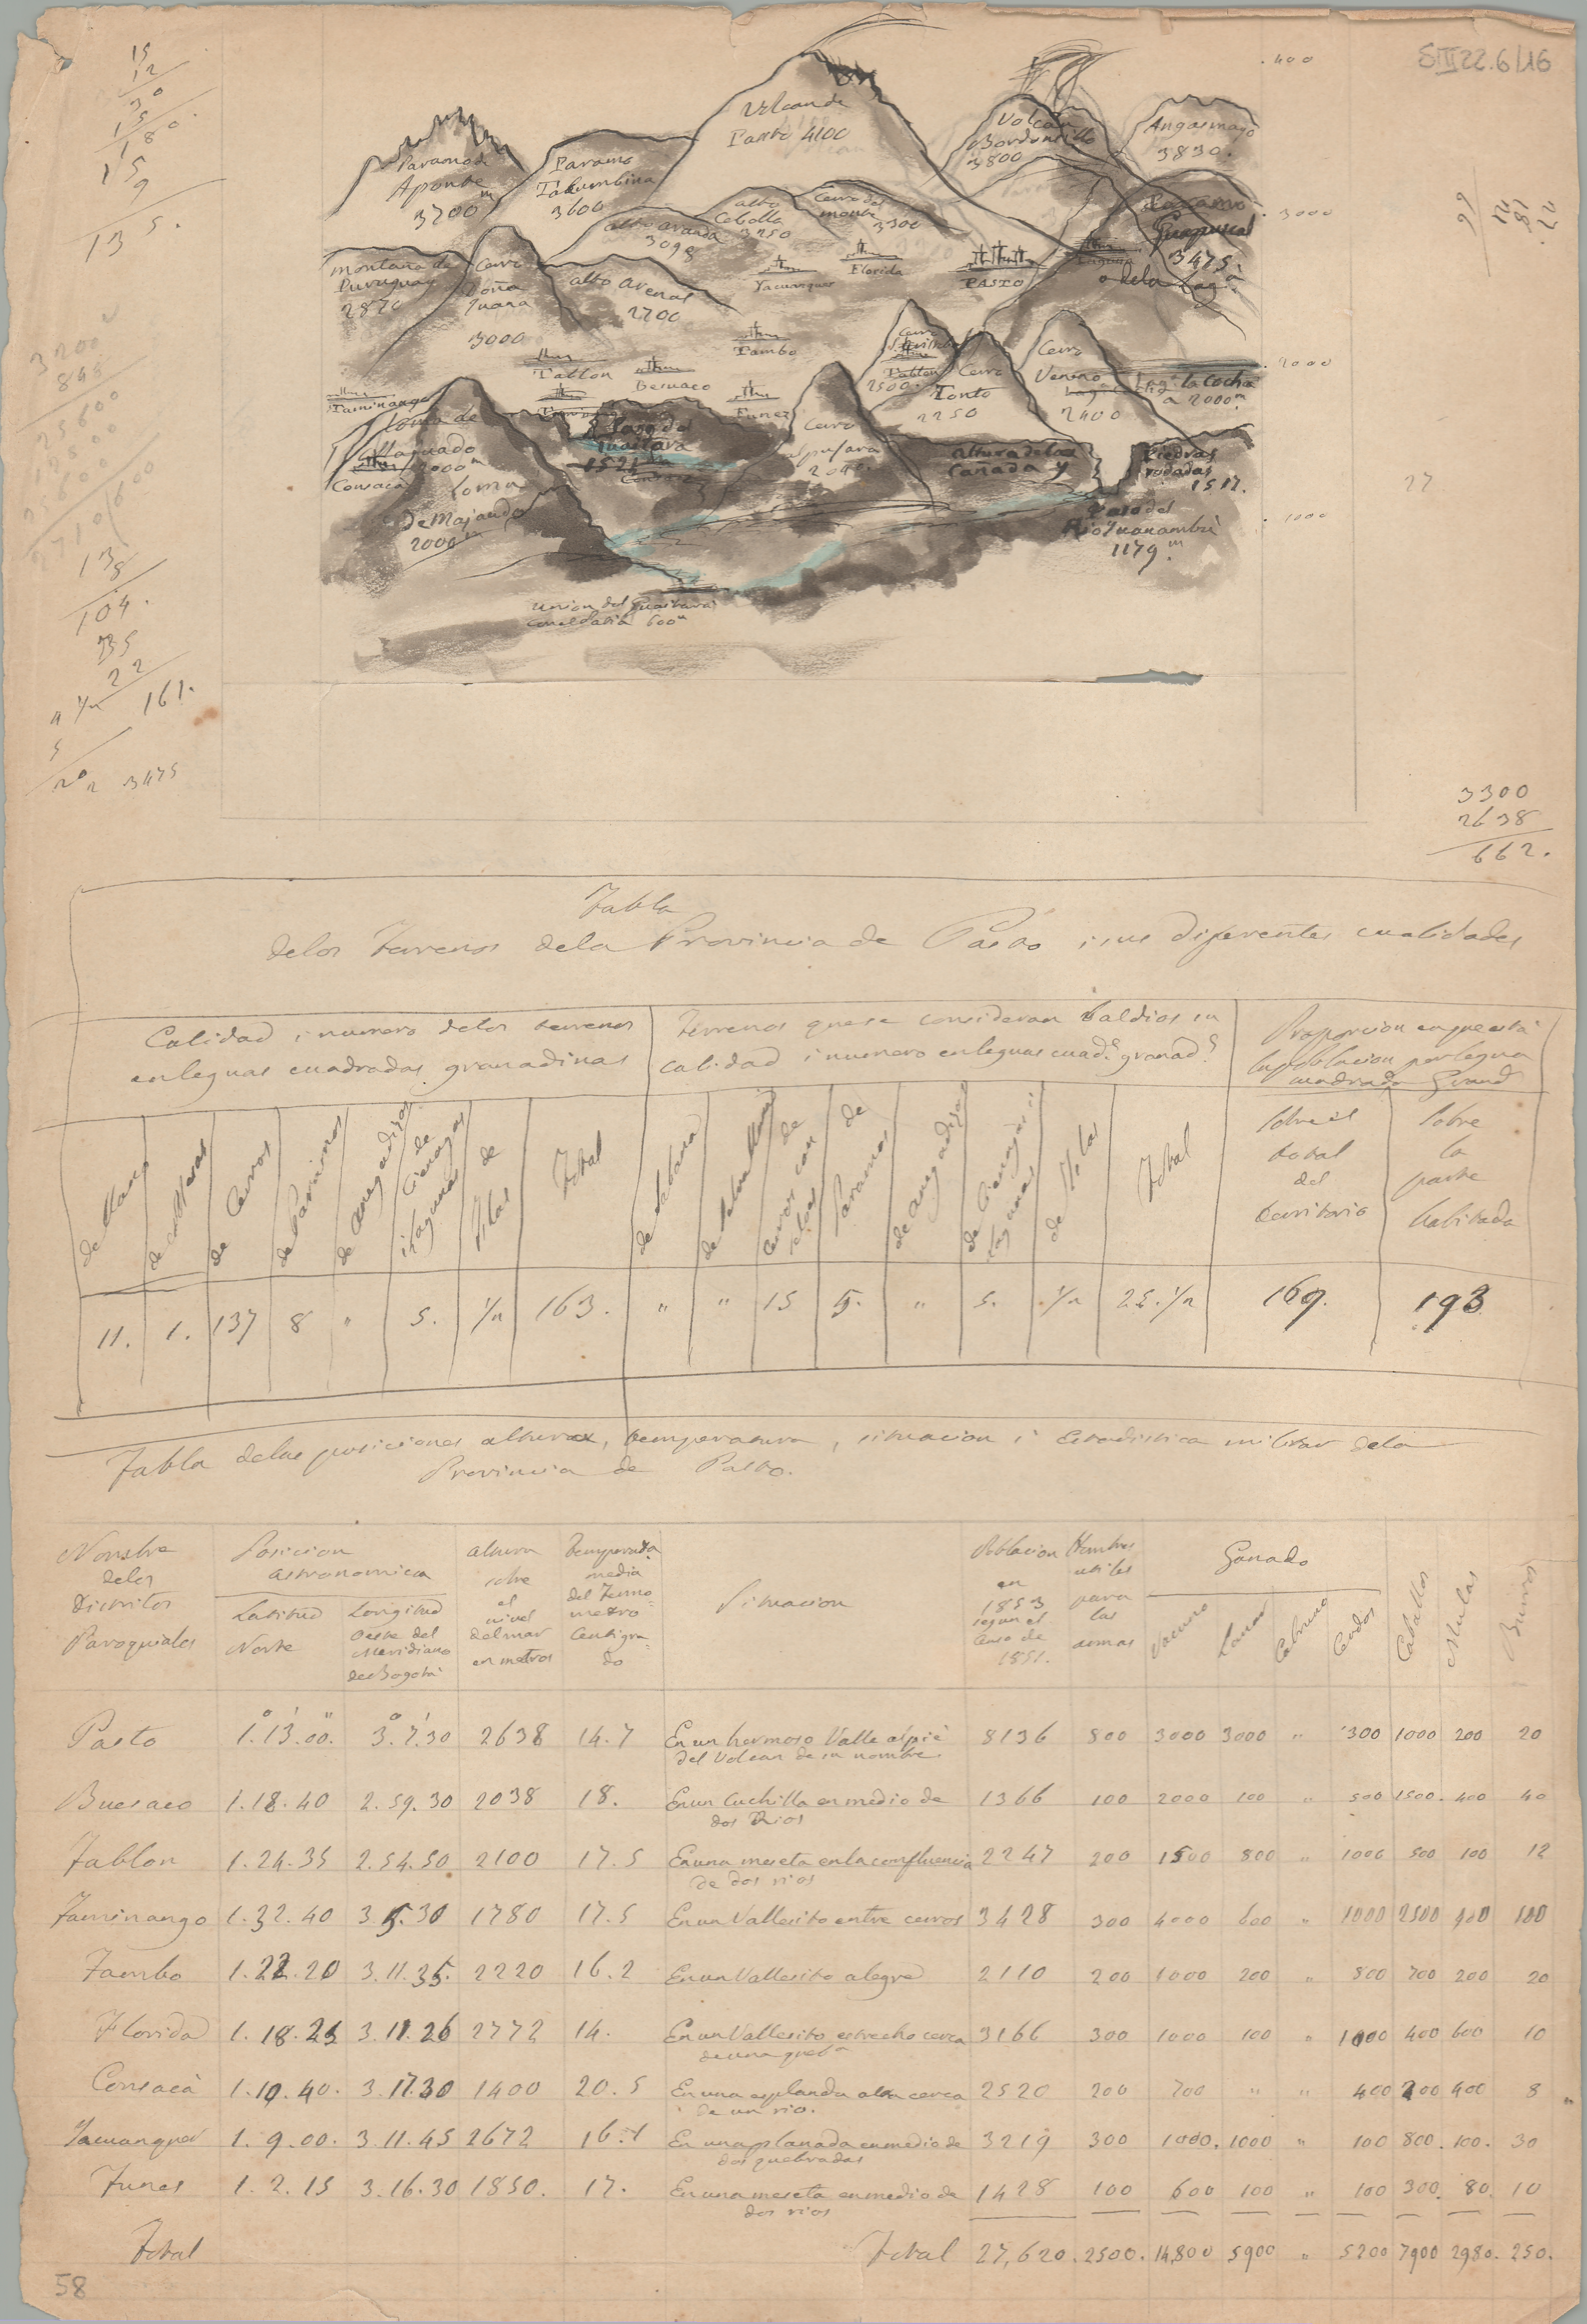 SIII 22.6/16
15
12
30
15
180.
15
9
135.
Volcan de
Pasto 4100
Volcan
Bordoncillo
3800
Angasmayo
3830.
Paramo de
Aponte
3200m
Paramo
Tacumbina
3600
alto
Cebolla
3250
Cerro del
monte
3300
alto aranda
3098
Paramo
Guapuscal
3475
o de la
. 400
. 3000
. 2000
. 1000
montaña de
Puruguay
2870
Cerro
Doña
Juana
3000
alto arenal
2700
Yacuanquer
Florida
PASTO
Laguna
Tambo
Tablon
Besuaco
Funez
Taminango
Cerro
Tablon
2500.
Cerro
Tonto
2250
Cerro
Veneno
2400
la Cocha
a 2000m
Loma de
2000m
Consacá
Loma
de Majando
2000m
Paso del
Guaitara
1521m
Cerro
alpujara
altura de la
Cañada y
Piedras
rodadas
1517.
Paso del
Rio Juanambú
1179.m
Union del Guaitara
con el Patia 600m
3200
848
25600
138
104.
35
22
161.
3475
27
3300
2638
662.
Tabla
de los Terrenos de la Provincia de Pasto i sus diferentes cualidades
Calidad i numero de los terrenos
en leguas cuadradas granadinas
Terrenos que se consideran baldios su
calidad i numero en leguas cuad.s granad.s
Proporcion en que está
la poblacion por legua
cuadrada Granad
de Llano
de Mesas
de Cerros
de Paramos
de anegadizos
de Cienagas
i lagunas
de Islas
Total
de Sabana
de
Cerros con
selvas
de Paramos
de anegadizos
de Cienagas i
lagunas
de Islas
Total
sobre el
total
del
territorio
sobre
la
parte
habitada
11. 1. 137 8 " 5. 1/2 163. " " 15 5. " 5. 1/2 25.1/2 169. 193
Tabla de las posiciones alturas, temperatura, situacion i Estadistica militar de la
Provincia de Pasto.
Nombre
de los
Distritos
Paroquiales
Posicion
astronomica
Latitud
Norte
Longitud
Oeste del
Meridiano
de Bogotá
altura
sobre
el
nivel
del mar
en metros
temperada
media
del Termo
metro
Centigra
do
Situacion
Poblacion
en
1853
segun el
Censo de
1851.
Hombres
utiles
para
las
armas
Ganado
Vacuno
Lanar
Cabruno
Cerdos
Caballos
Mulas
Burros
Pasto 1°.13'.00." 3°.7'.30 2638 14.7 En un hermoso Valle al pié 8136 800 3000 3000 " 300 1000 200 20
del Volcan de su nombre
Buesaco 1.18.40 2.59.30 2038 18. En un Cuchilla en medio de 1366 100 2000 100 " 500 1500. 400 40
dos Rios
Tablon 1.24.35 2.54.50 2100 17.5 En una meseta en la confluencia 2247 200 1500 800 " 1000 500 100 12
de dos rios
Taminango 1.32.40 3.5.30 1780 17.5 En un Vallesito entre cerros 3428 300 4000 600 " 1000 2500 400 100
Tambo 1.22.20 3.11.35. 2220 16.2 En un Vallesito alegre 2110 200 1000 200 " 800 700 200 20
Florida 1.18.25 3.11.26 2772 14. En un Vallesito estrecho cerca 3166 300 1000 100 " 1000 400 600 10
de una queba
Consacá 1.10.40. 3.17.30 1400 20.5 En una esplanda alta cerca 2520 200 700 " " 400 200 400 8
de un rio.
Yacuanquer 1.9.00. 3.11.45 2672 16.1 En una planada en medio de 3219 300 1000. 1000 " 100 800. 100. 30
dos quebradas
Funes 1.2.15 3.16.30 1850. 17. En una meseta en medio de 1428 100 600 100 " 100 300. 80. 10
dos rios
Total Total 27,620. 2500. 14,800 5900 " 5200 7900 2980. 250.
58